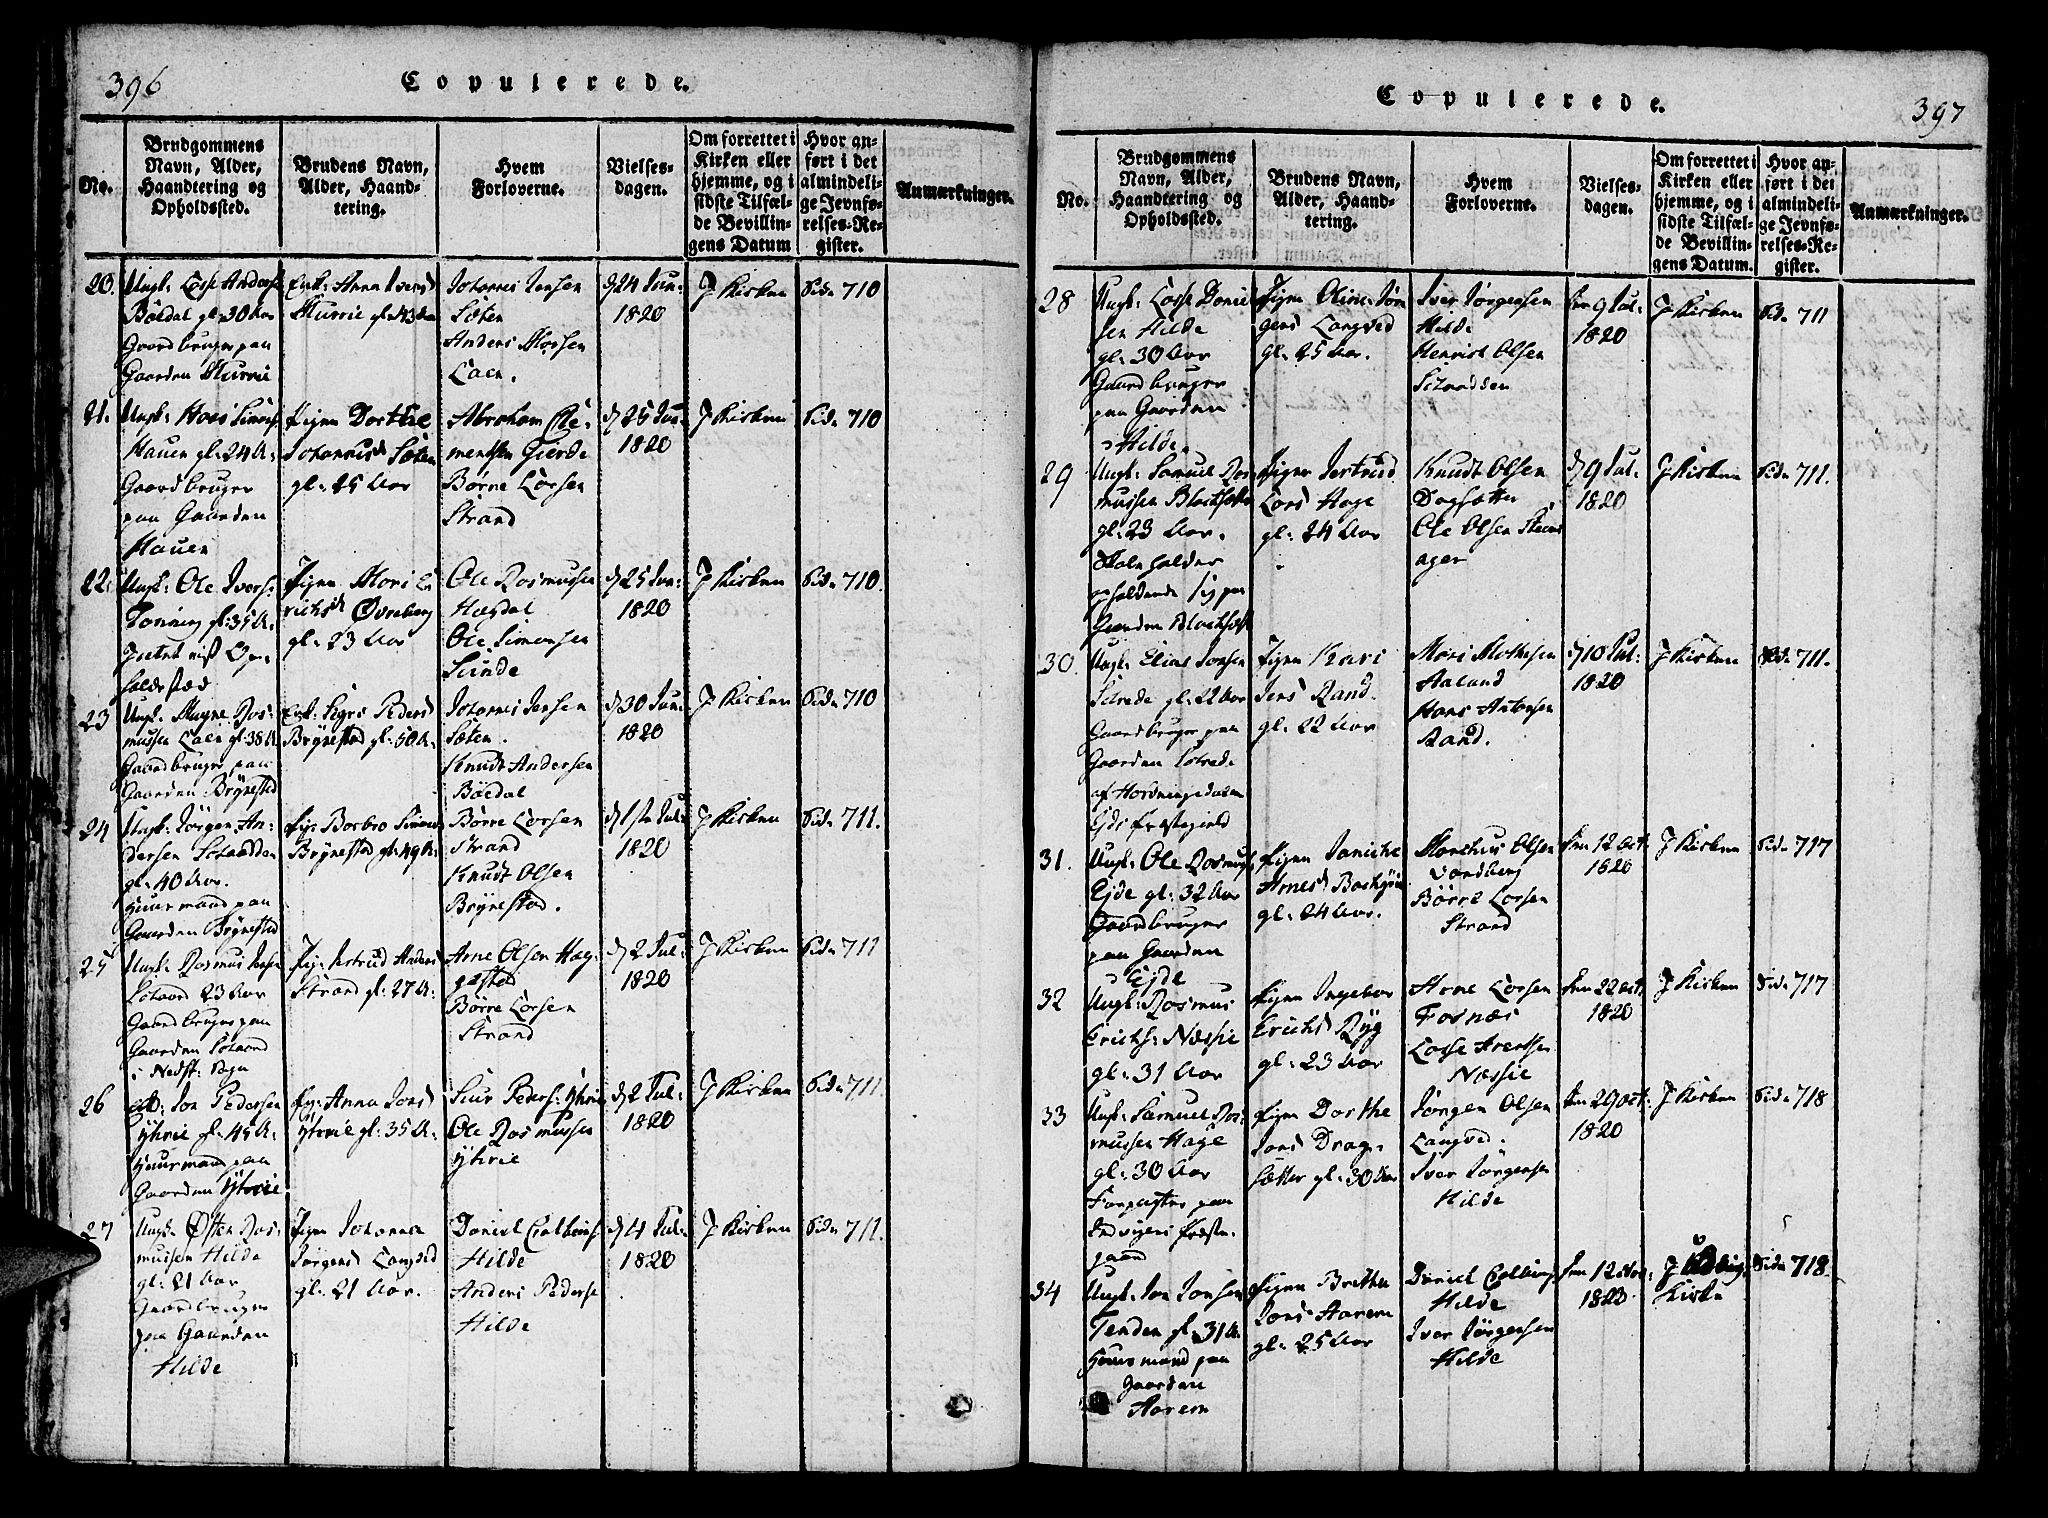 396
Copulerede.
No.
Brudgommens
Navn, Alder,
Haandtering og
Opholdssted.
Brudens Navn,
Alder, Haand-
tering.
Hvem
Forloverne.
Vielses-
dagen.
Om forrettet i
Kirken eller
hjemme, og i
sidste Tilfæl-
de Bevillin-
gens Datum
Hvor an-
ført i det
almindeli-
ge Jevnfø-
relses-Re-
gister.
Anmærkninger.
20.
Ungk: Lasse Anders:
Böedal gl: 30 Aar
Gaardbruger paa
Gaarden Murrie
Enk: Anna Ivers
Murrie gl: 43 Aar
Johannes Jensen
Sæten
Anders Morsen
Loen.
d 24 Jun:
1820
J Kirken
Side 710
21.
Ungk: Hans Simens
Hauen gl: 24 A:
Gaardbruger
paa Gaarden
Hauen
Pigen Dorthe
Johannisd Sæten
gl: 25 Aar
Abraham Cle-
mentsen Gierde
Børre Larsen
Strand
d 25 Jun:
1820
J Kirken
Side 710
22.
Ungk: Ole Ivers:
Tonning gl: 35 A:
J intet vist Op-
holdssted
Pigen Mari E
richsd Øvreberg
gl: 23 Aar
Ole Rasmussen
Hægdal
Ole Simensen
Sunde
d 25 Jun:
1820
J Kirken
Side 710.
23
Ungk: Magne Ras-
mussen Loen gl: 38 A
Gaardbruger paa
Gaarden Brÿnestad
Enk: Sigri Peders
Brÿnestad gl: 50 A:
Johannes Jensen
Sæten.
Knudt Andersen
Böedal
d 30 Jun:
1820
J Kirken
Side 710
24
Ungk: Jörgen An-
dersen
gl: 40 Aar.
Huusmand paa
Gaarden Brÿnestad
Pig: Barbro Simens
Brÿnestad gl: 49 A:
Børre Larsen
Strand
Knudt Olsen
Brÿnestad.
d 1ste Jul:
1820
J Kirken
Side 711.
25
Ungk: Rasmus Jensen
Staard 23 Aar
Gaardbruger paa
Gaarden
i Nedst: Sogn
Pig: Jertrud Anders
Strand gl: 27 A:
Arne Olsen Hæg-
gestad
Børre Larsen
Strand
d 2 Jul:
1820
J Kirken
Side 711
26
Enk: Jon Pedersen
Ÿtrie gl: 45 A:
Huusmand paa
Gaarden Ÿtrie
Pig: Anna Jons
Ÿtrie gl: 35 A:
Siur Peders: Ÿtrie
Ole Rasmussen
Ÿtrie
d 2 Jul:
1820
J Kirken
Side 711.
27
Ungk: Østen Ras-
mussen Hilde
gl: 21 Aar
Gaardbruger
paa Gaarden
Hilde
Pigen Johanna
Jörgens Langved
gl: 21 Aar.
Daniel Colbeins
Hilde
Anders Peders
Hilde
d 4 Jul:
1820
J Kirken
Side 711.
Copulerede.
397
No.
Brudgommens
Navn, Alder,
Haandtering og
Opholdssted.
Brudens Navn,
Alder, Haand-
tering.
Hvem
Forloverne.
Vielses-
dagen.
Om forrettet i
Kirken eller
hjemme, og i
sidste Tilfæl-
de Bevillin-
gens Datum.
Hvor an-
ført i det
almindeli-
ge Jevnfø-
relses-Re-
gister.
Anmærkninger.
28
Ungk: Lasse Daniel
sen Hilde
gl: 30 Aar
Gaardbruger
paa Gaarden
Hilde.
Pigen Oline Jør
gens Langved
gl: 25 Aar.
Iver Jørgensen
Hilde
Henrich Olsen
den 9 Jul:
1820
J Kirken
Side 711
29
Ungk: Samuel Ras
mussen Blachsæt
gl: 23 Aar.
Skoleholder
opholdende sig paa
Gaarden Blachsæt
Pigen Jertrud
Lars Hage
gl: 24 Aar
Knudt Olsen
Dragsætter
Ole Olsen Steens
ager
d 9 Jul:
1820
J Kirken
Side 711.
30.
Ungk: Elias Jonsen
Sitrede gl: 22 Aar
Gaardbruger paa
Gaarden
af Hornings
Ejds Præstegield
Pigen Kari
Jens Rand
gl: 22 Aar
Mons Mathisen
Aaland
Hans Antonsen
Rand.
d 10 Jul:
1820
J Kirken
Side 711.
31.
Ungk: Ole Rasmus
Ejde gl: 32 Aar
Gaardbruger
paa Gaarden
Ejde
Pigen Janiche
Arnesd
gl: 24 Aar.
Marthus Olsen
Vardberg
Börre Larsen
Strand
den 12 Oct
1820
J Kirken
Side 717
32
Ungk: Rasmus
Erichs: Næssie
gl: 31 Aar
Pigen Ingebor
Erichs Rÿg
gl: 23 Aar
Arne Larsen
Fosnæs
Lasse Arentsen
Næssie
den 22 Oct,
1820
J Kirken
Side 717
33
Ungk: Samuel Ras-
mussen Hage
gl: 30 Aar
Forpagter paa
Indvigens Præste-
gaard
Pigen Dorthe
Jons Drag-
sætter gl: 30 Aar
Jørgen Olsen
Langved.
Iver Jørgensen
Hilde
den 29 Oct:
1820
J Kirken
Side 718
34
Ungk: Jon Jonsen
Tenden gl: 31 A
Huusmand paa
Gaarden
Aarem
Pigen Brethe
Jons Aarem
gl: 25 Aar
Daniel Colbeins
Hilde
Iver Jørgensen
Hilde
den 12 Nov:
1820
J
Kirke
Side 718.